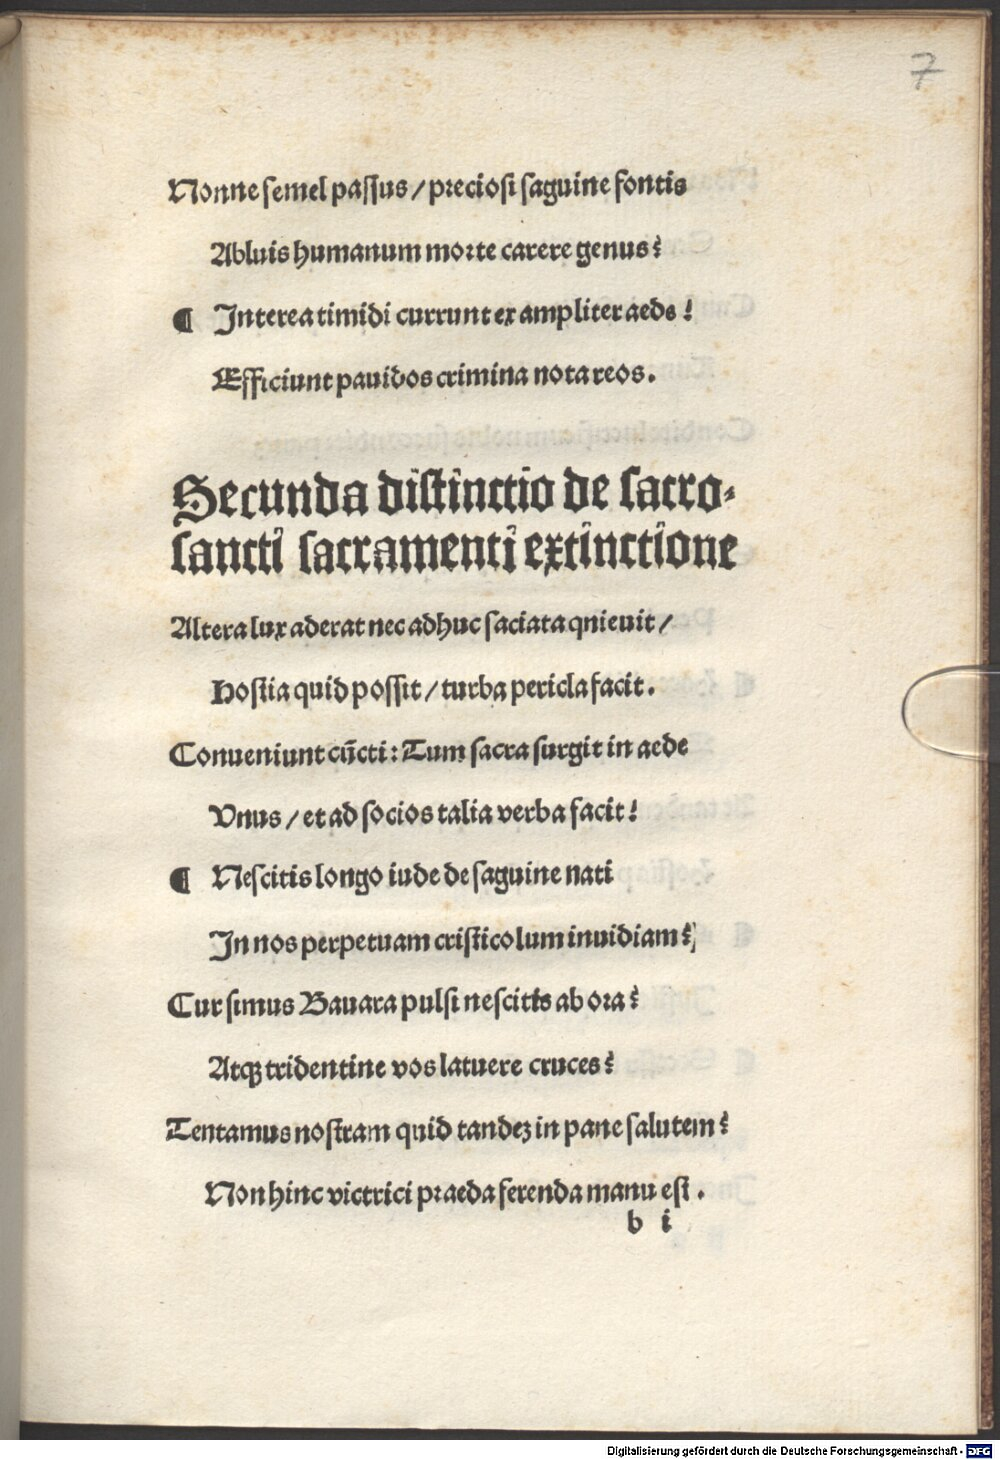 7
Nonne semel passus / preciosi saguine fontis
Abluis humanum morte carere genus?
¶ Interea timidi currunt ex ampliter aede!
Efficiunt pauidos crimina nota reos.
Secunda distinctio de sacro-
sancti sacramenti extinctione
Altera lux aderat nec adhuc saciata qnieuit /
Hostia quid possit / turba pericla facit.
Conueniunt cūcti: Tum sacra surgit in aede
Vnus / et ad socios talia verba facit!
¶ Nescitis longo iude de saguine nati
In nos perpetuam cristicolum inuidiam?
Cur simus Bauara pulsi nescitis ab ora?
Atqꝫ tridentine vos latuere cruces?
Tentamus nostram quid tandeꝫ in pane salutem?
Non hinc victrici praeda ferenda manu est.
b i
Digitalisierung gefördert durch die Deutsche Forschungsgemeinschaft - DFG